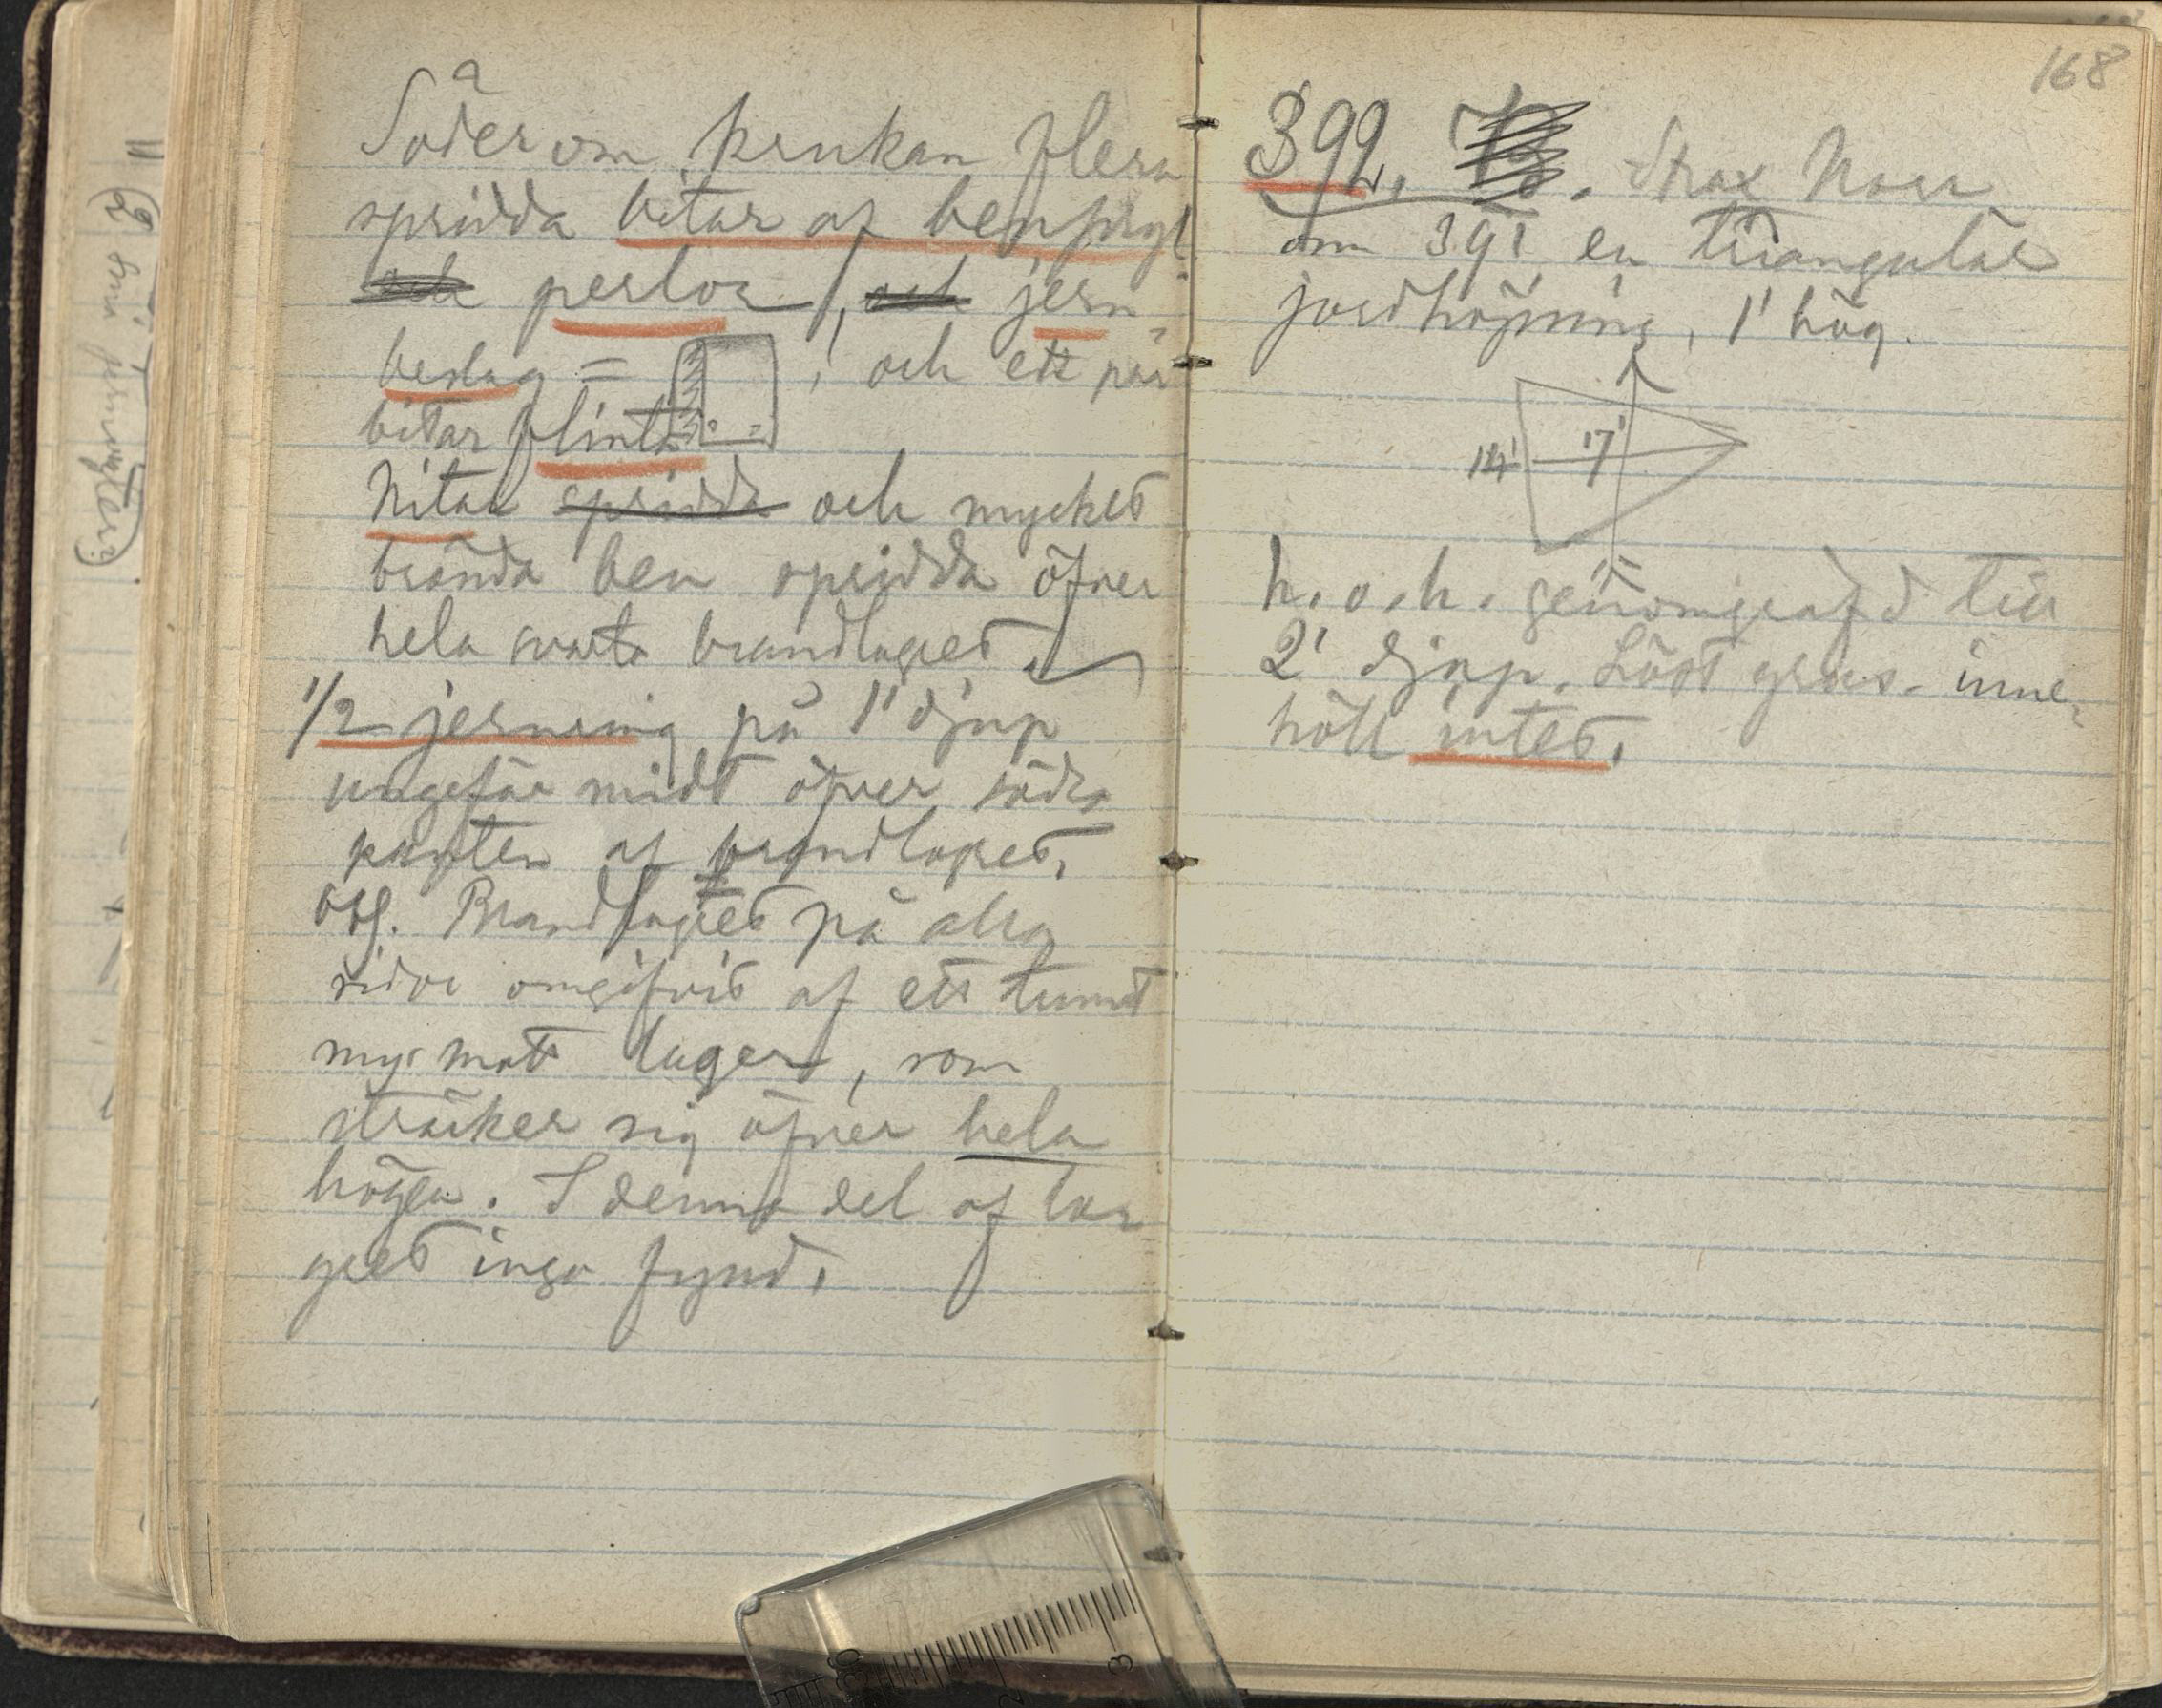 Söder om krukan flera
spridda bitar af benpryl
och perlor, och jern-
beslag = , och ett par
bitar flinta
Nitar spridda och mycket
brända ben spridda öfver
hela svarta brandlagret.
1/2 jernring på 1' djup
ungefär midt öfver södra
kanten af brandlagret.
Obs. Brandlagret på alla
sidor omgifvit af ett tunnt
lager, som
sträcker sig öfver hela
högen. I denna del af la
gret inga fynd.
168
392. Strax Norr
om 391 en triangulär
jordhöjning, 1' hög.
14' 17'
h. o. h. genomgrafd till
2' djup. Löst grus. inne-
höll intet.
3